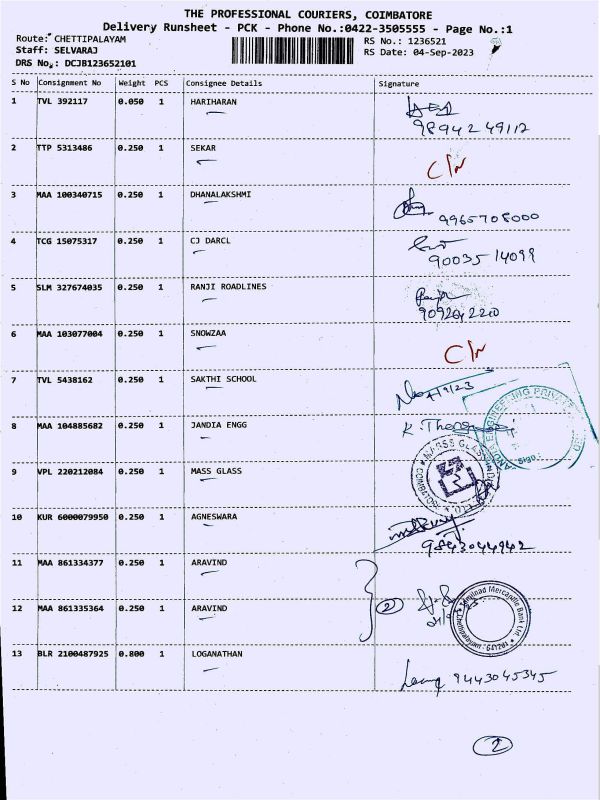 THE PROFESSIONAL COURIERS, COIMBATORE
Delivery Runsheet - PCK - Phone No.:0422-3505555 - Page No.:1
Route: CHETTIPALAYAM
RS No.: 1236521
Staff: SELVARAJ
RS Date: 04-Sep-2023
DRS No.: DCJB123652101
S No Consignment No Weight PCS Consignee Details Signature
1 TVL 392117 0.050 1 HARIHARAN
98942 49112
2 TTP 5313486 0.250 1 SEKAR
C/N
3 MAA 100340715 0.250 1 DHANALAKSHMI
9965708000
4 TCG 15075317 0.250 1 CJ DARCL
90035 14099
5 SLM 327674035 0.250 1 RANJI ROADLINES
9092042210
6 MAA 103077004 0.250 1 SNOWZAA
C/N
7 TVL 5438162 0.250 1 SAKTHI SCHOOL
8 MAA 104885682 0.250 1 JANDIA ENGG
9 VPL 220212084 0.250 1 MASS GLASS
10 KUR 6000079950 0.250 1 AGNESWARA
9843044942
11 MAA 861334377 0.250 1 ARAVIND
2
12 MAA 861335364 0.250 1 ARAVIND
Tamilnad Mercantile Bank Ltd.
13 BLR 2100487925 0.800 1 LOGANATHAN
9443045345
2